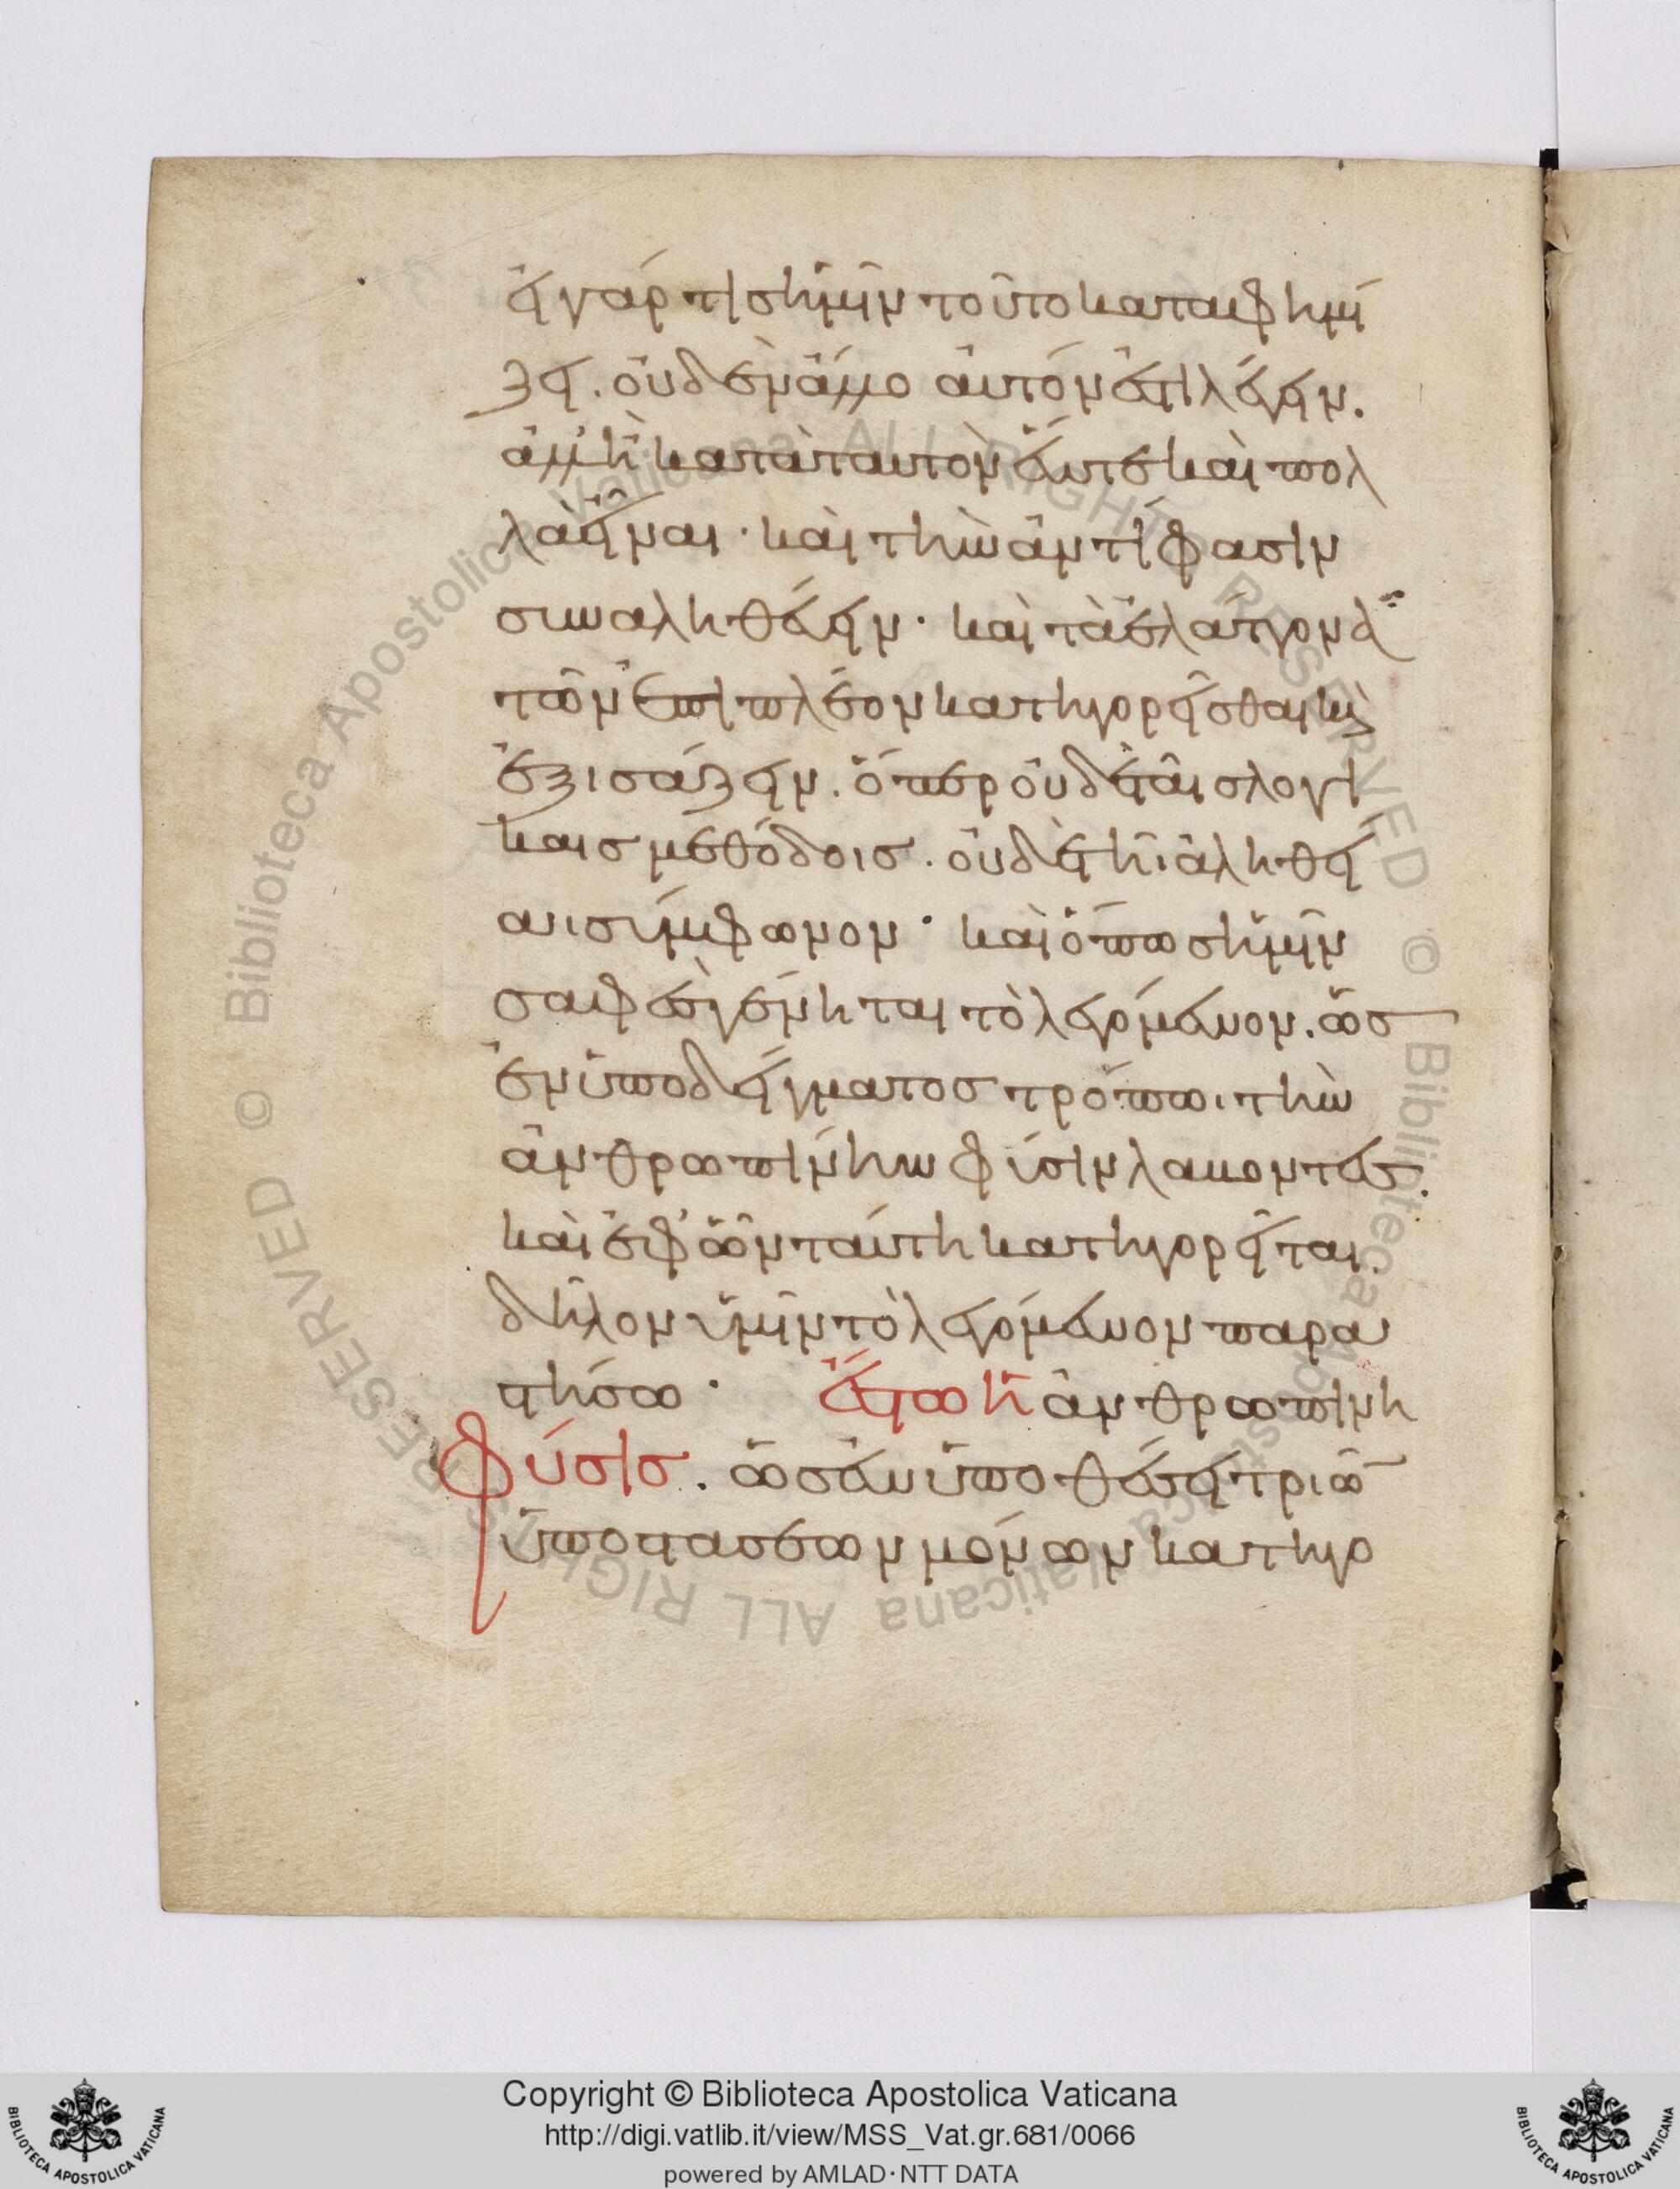 εἰ γάρ τις ἡμῖν τοῦτο καταψημί
ζει. οὐδὲν ἄλλο αὐτόν ἐστι λέγειν.
ἀλλ' ἢ κατὰ ταυτὸν ἕν τε καὶ πολ
λὰ εἶναι · καὶ τὴν ἀντίφασιν
συναληθεύειν · καὶ τὰ ἐλάττονα
τῶν ἐπιπλέον κατηγορεῖσθαι καὶ
ἐξισάζειν. ὅπερ οὐδὲ ταῖς λογι
καις μεθόδοις. οὐδὲ τῆι ἀληθεί
αι σύμφωνον · καὶ ὅπως ἡμῖν
σαφὲς γένηται τὸ λεγόμενον. ὡς
ἐν ὑποδείγματος τρόπωι τὴν
ἀνθρωπίνην φύσιν λαβοντες.
καὶ ἐφ' ὧν ταύτη κατηγορεῖται.
δῆλον ὑμῖν τὸ λεγόμενον παρα
στήσω · Ἔστω ἡ ἀνθρωπίνη
φύσις. ὡς ἐν ὑποθέσει τριῶν
ὑποστασέων μόνων κατηγο
Copyright © Biblioteca Apostolica Vaticana
http://digi.vatlib.it/view/MSS_Vat.gr.681/0066
powered by AMLAD·NTT DATA
BIBLIOTECA APOSTOLICA VATICANA
BIBLIOTECA APOSTOLICA VATICANA
© Biblioteca Apostolica Vaticana ALL RIGHTS RESERVED
© Biblioteca Apostolica Vaticana ALL RIGHTS RESERVED